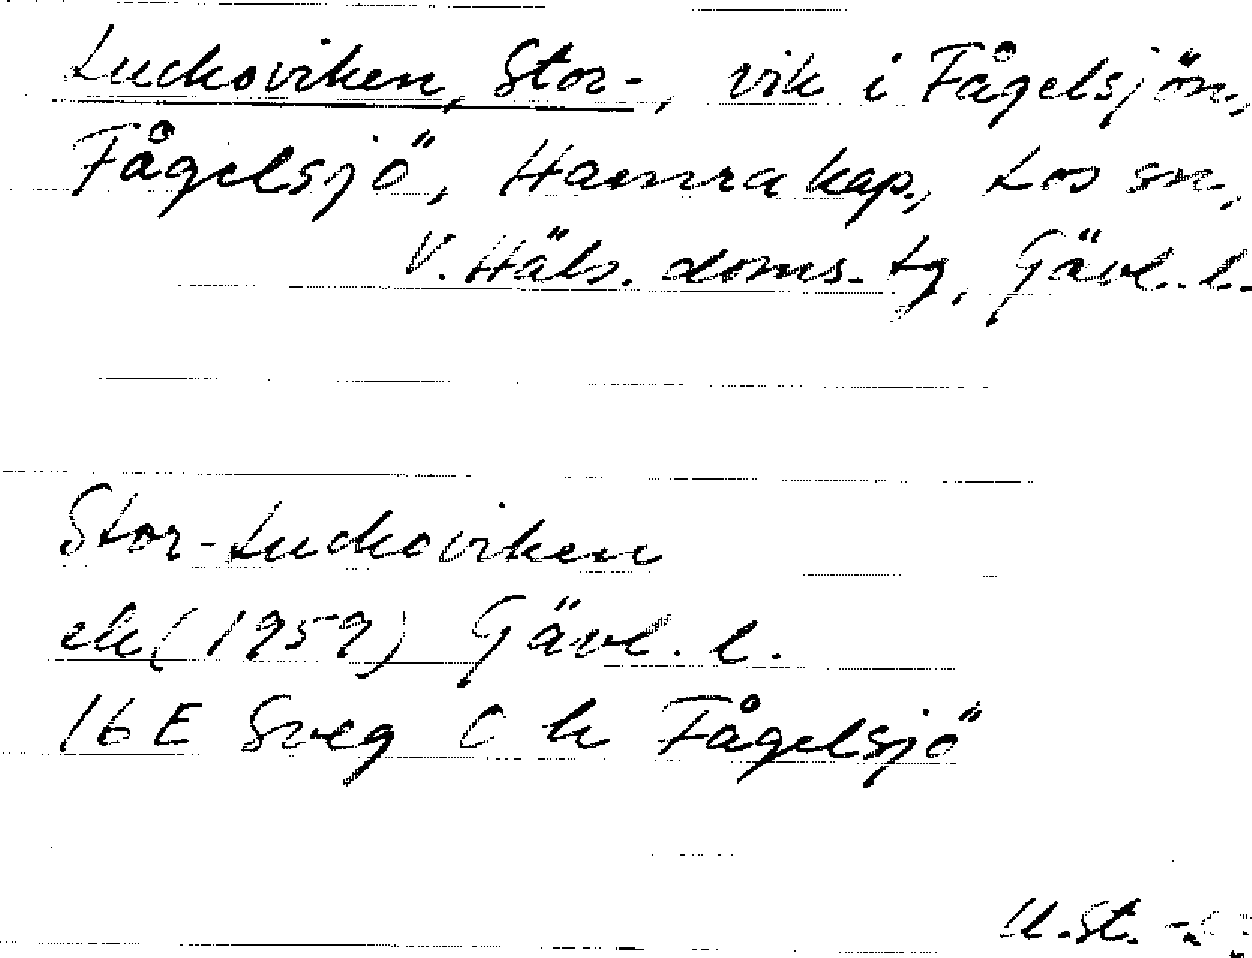 Luckoviken, Stor-, vik i Fågelsjön,
Fågelsjö, Hamra kap., Los sn,
V. Häls. doms. tg, Gävl. l.
Stor-Luckoviken
ek (1959) Gävl. l.
16 E Sveg C h Fågelsjö
U. St.